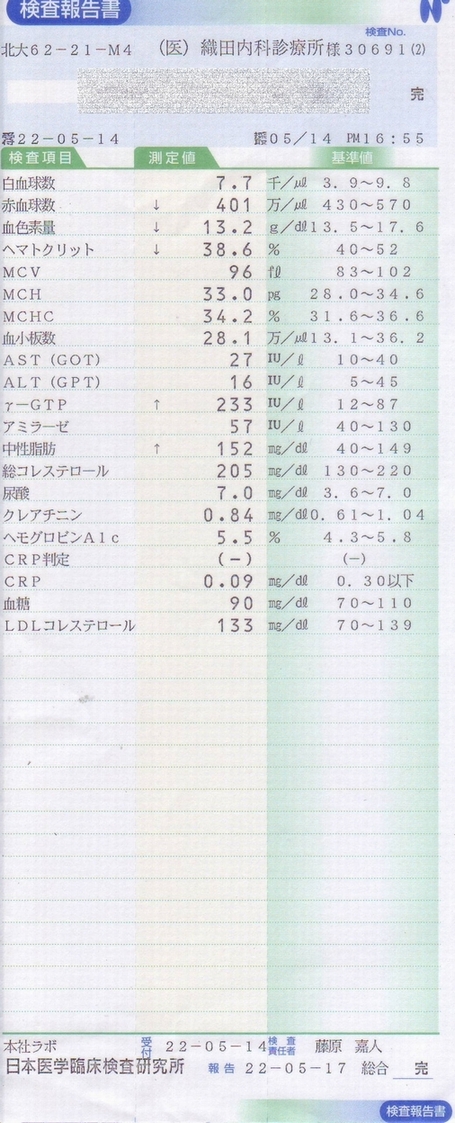 検査報告書
検査No.
北大62-21-M4 (医) 織田内科診療所様30691(2)
完
22-05-14 05/14 PM16:55
検査項目 測定値 基準値
白血球数 7.7 千/μl 3.9~9.8
赤血球数 ↓ 401 万/μl 430~570
血色素量 ↓ 13.2 g/dl 13.5~17.6
ヘマトクリット ↓ 38.6 % 40~52
MCV 96 fl 83~102
MCH 33.0 pg 28.0~34.6
MCHC 34.2 % 31.6~36.6
血小板数 28.1 万/μl 13.1~36.2
AST(GOT) 27 IU/l 10~40
ALT(GPT) 16 IU/l 5~45
γ-GTP ↑ 233 IU/l 12~87
アミラーゼ 57 IU/l 40~130
中性脂肪 ↑ 152 mg/dl 40~149
総コレステロール 205 mg/dl 130~220
尿酸 7.0 mg/dl 3.6~7.0
クレアチニン 0.84 mg/dl 0.61~1.04
ヘモグロビンA1c 5.5 % 4.3~5.8
CRP判定 (-) (-)
CRP 0.09 mg/dl 0.30以下
血糖 90 mg/dl 70~110
LDLコレステロール 133 mg/dl 70~139
本社ラボ 受付 22-05-14 検査責任者 藤原 嘉人
日本医学臨床検査研究所 報告 22-05-17 総合 完
検査報告書